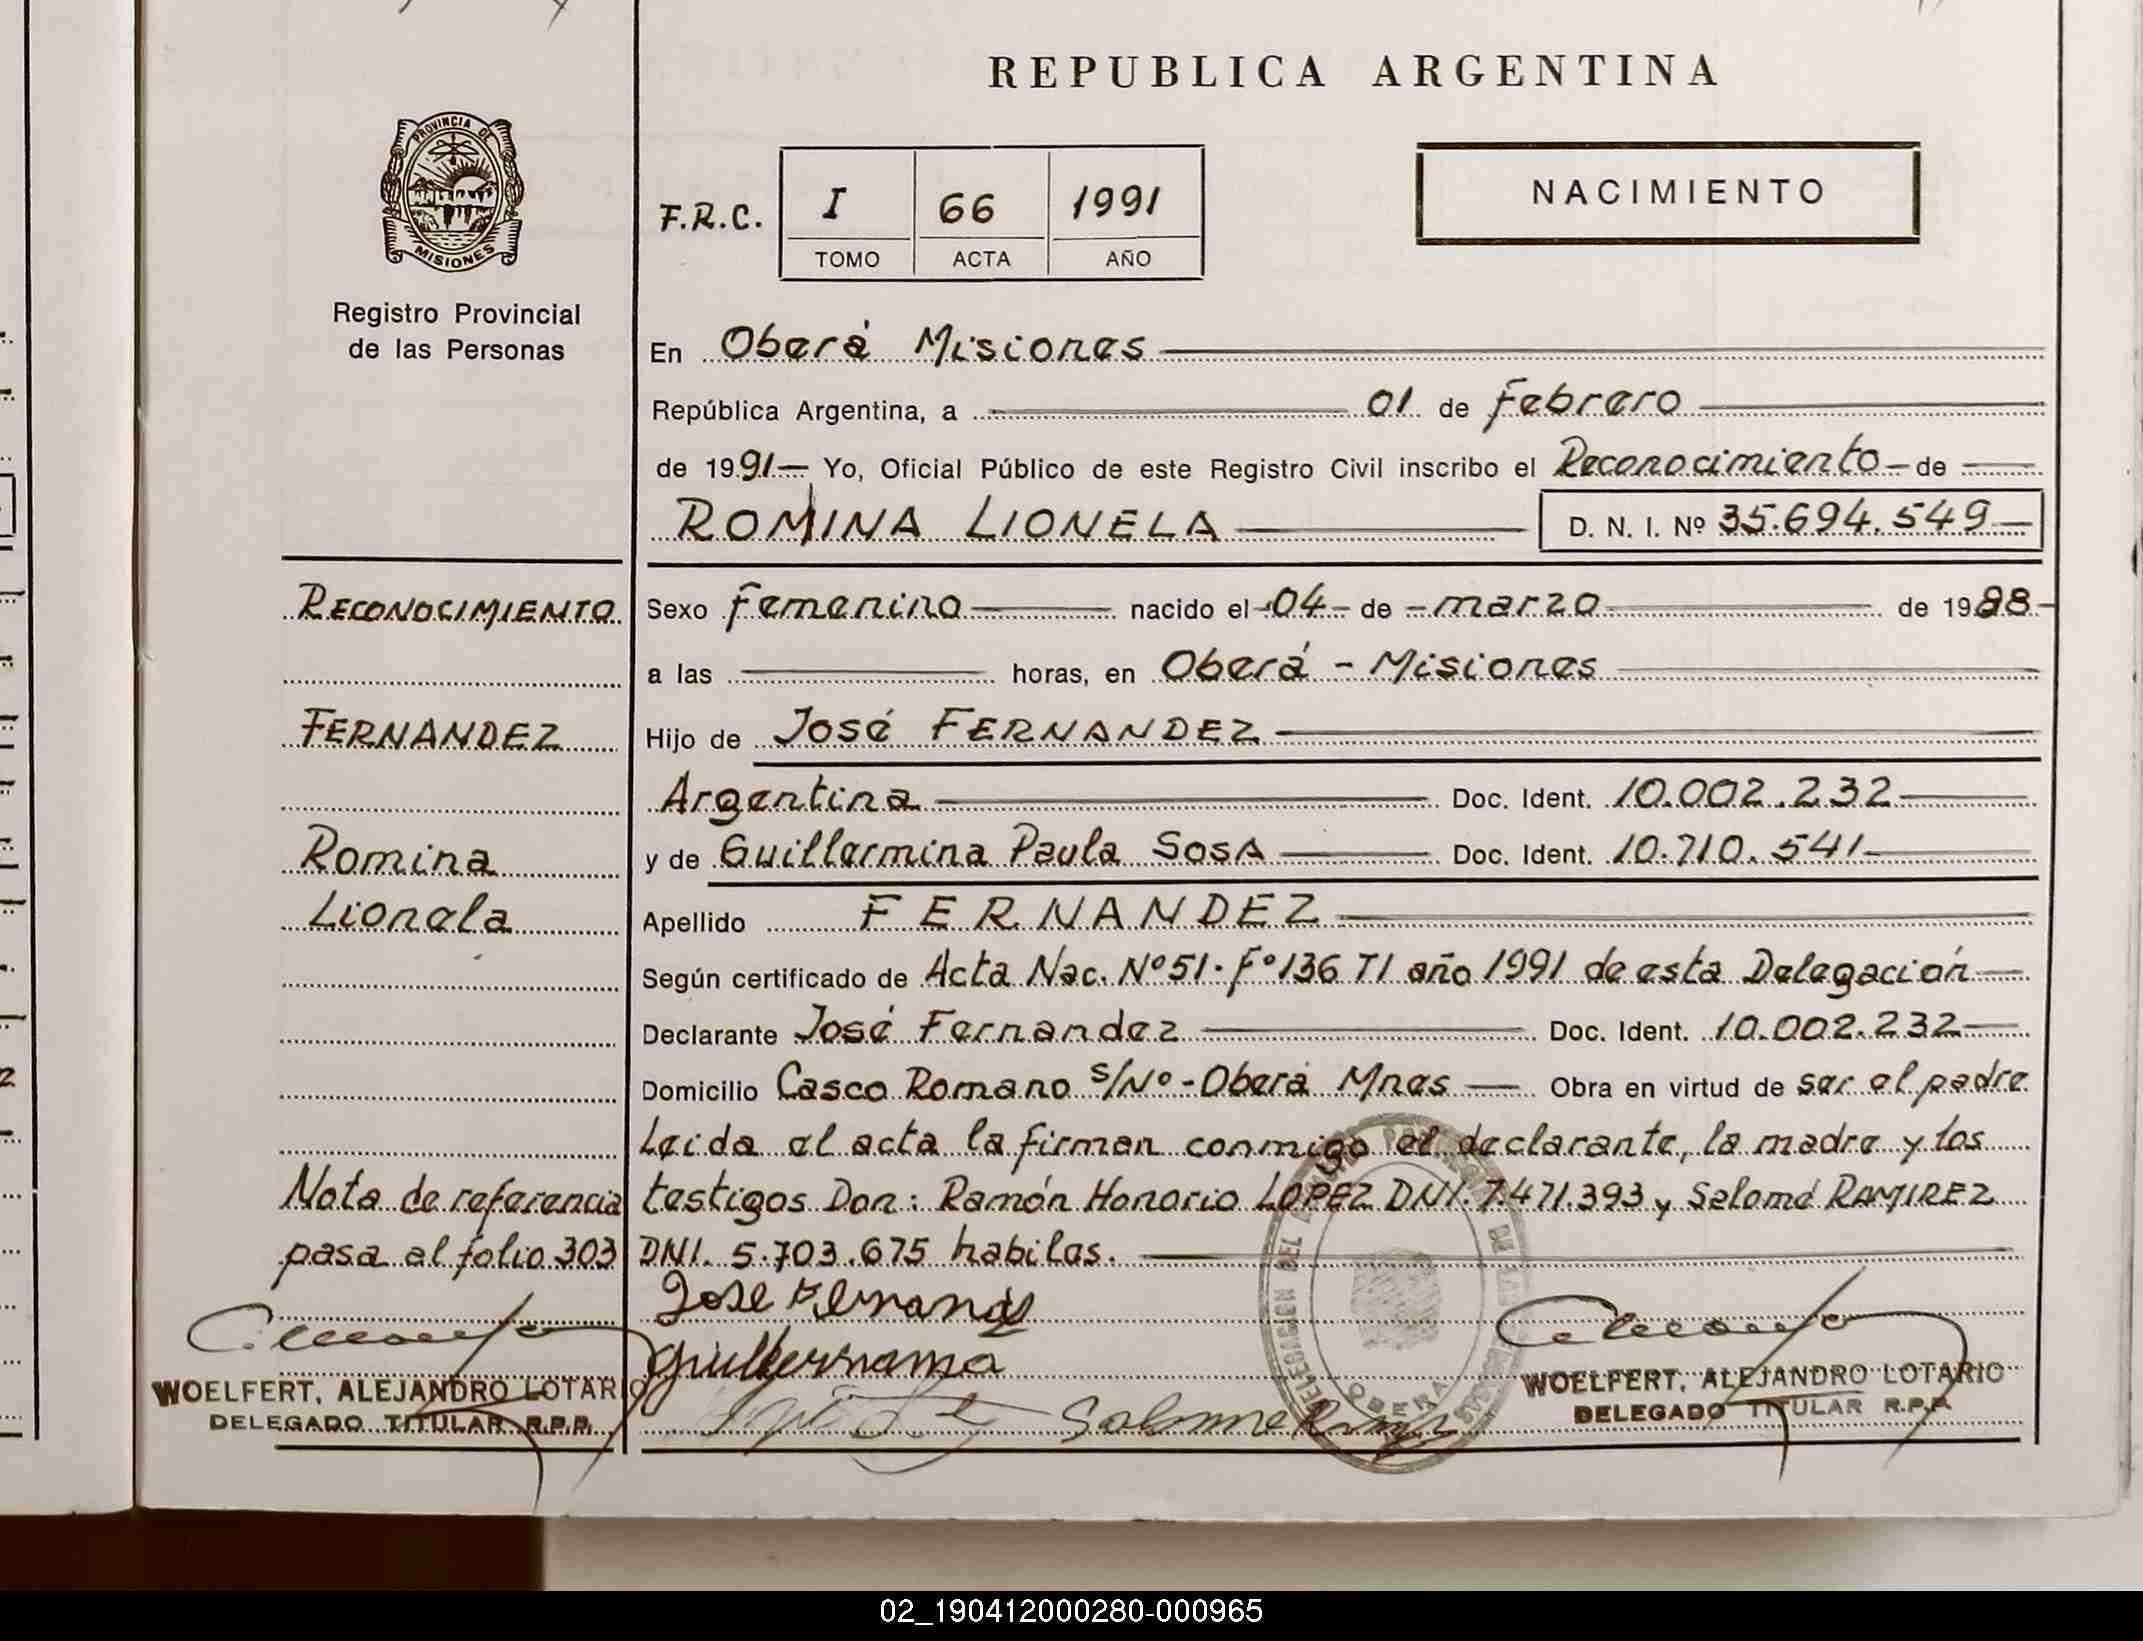 REPUBLICA ARGENTINA
PROVINCIA DE
MISIONES
Registro Provincial
de las Personas
F.R.C.
I 66 1991
TOMO ACTA AÑO
NACIMIENTO
En Oberá Misiones
República Argentina, a 01 de Febrero
de 1991- Yo, Oficial Público de este Registro Civil inscribo el Reconocimiento - de
ROMINA LIONELA D. N. I. Nº 35.694.549
RECONOCIMIENTO
FERNANDEZ
Romina
Lionela
Nota de referencia
pasa al folio 303
WOELFERT, ALEJANDRO LOTARIO
DELEGADO TITULAR R.P.P.
Sexo Femenino nacido el -04- de - marzo de 1988-
a las horas, en Oberá - Misiones
Hijo de José FERNANDEZ
Argentina Doc. Ident. 10.002.232
y de Guillermina Paula SOSA Doc. Ident. 10.710.541
Apellido FERNANDEZ
Según certificado de Acta Nac. Nº 51. Fº 136 TI año 1991 de esta Delegación
Declarante José Fernandez Doc. Ident. 10.002.232
Domicilio Casco Romano s/Nº - Oberá Mnes Obra en virtud de ser el padre
Leida el acta la firman conmigo el declarante, la madre y los
testigos Don: Ramón Honorio LOPEZ DNI. 7.471.393 y Salomé RAMIREZ
DNI. 5.703.675 habiles.
Jose
WOELFERT, ALEJANDRO LOTARIO
DELEGADO TITULAR R.P.P.
OBERA
02_190412000280-000965